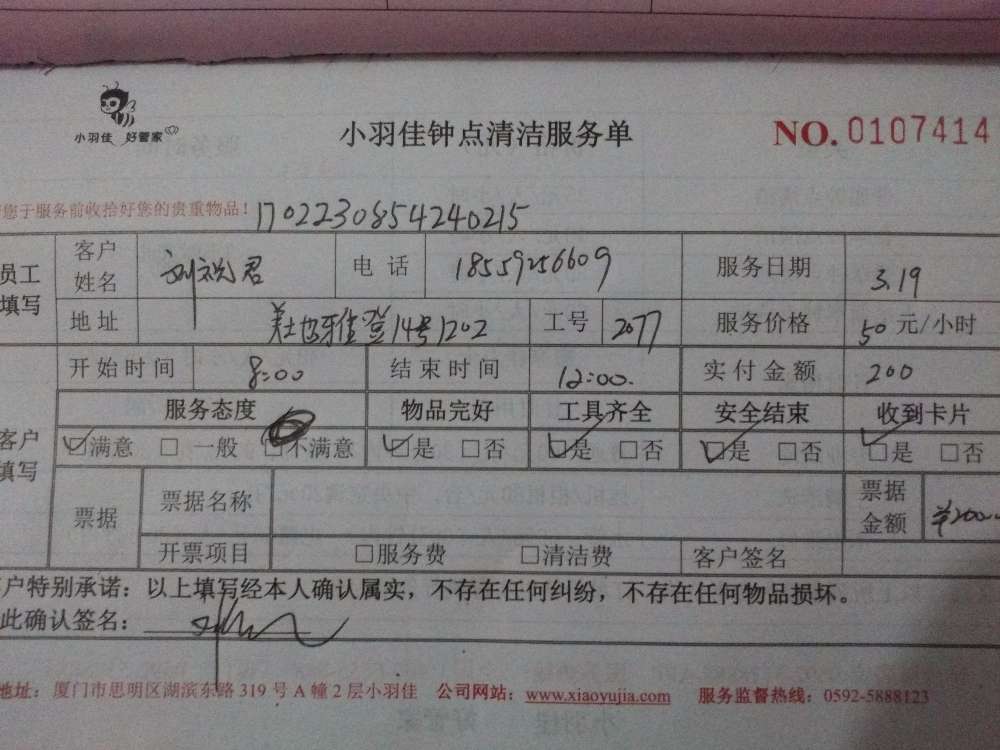 小羽佳 好管家
小羽佳钟点清洁服务单
NO. 0107414
您于服务前收拾好您的贵重物品！ 1702230854240215
员工填写
客户姓名 刘祝君 电话 18559256609 服务日期 3.19
地址 14号1202 工号 2077 服务价格 50元/小时
客户填写
开始时间 8:00 结束时间 12:00. 实付金额 200
服务态度 物品完好 工具齐全 安全结束 收到卡片
☑满意 □一般 □不满意 ☑是 □否 ☑是 □否 ☑是 □否 ☑是 □否
票据 票据名称 票据金额 ¥200.
开票项目 □服务费 □清洁费 客户签名
户特别承诺：以上填写经本人确认属实，不存在任何纠纷，不存在任何物品损坏。
此确认签名：
地址：厦门市思明区湖滨东路319号A幢2层小羽佳 公司网站：www.xiaoyujia.com 服务监督热线：0592-5888123